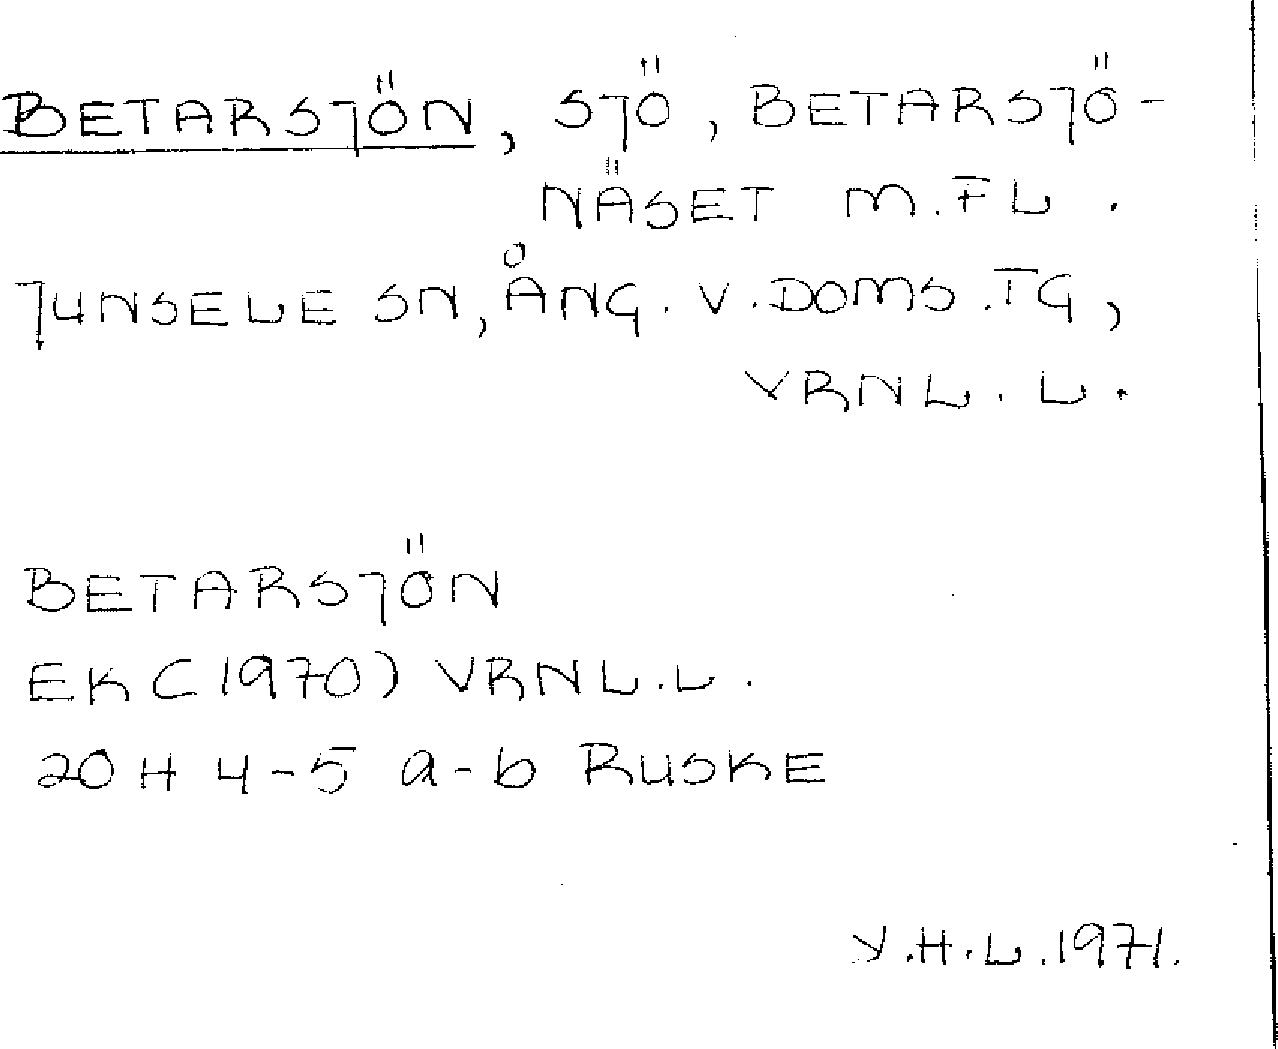 BETARSJÖN, SJÖ, BETARSJÖ-
NÄSET M.FL.
JUNSELE SN, ÅNG. V. DOMS. TG,
VRNL. L.
BETARSJÖN
EK (1970) VRNL.L.
20 H 4-5 a-b RUSKE
Y.H.L. 1971.